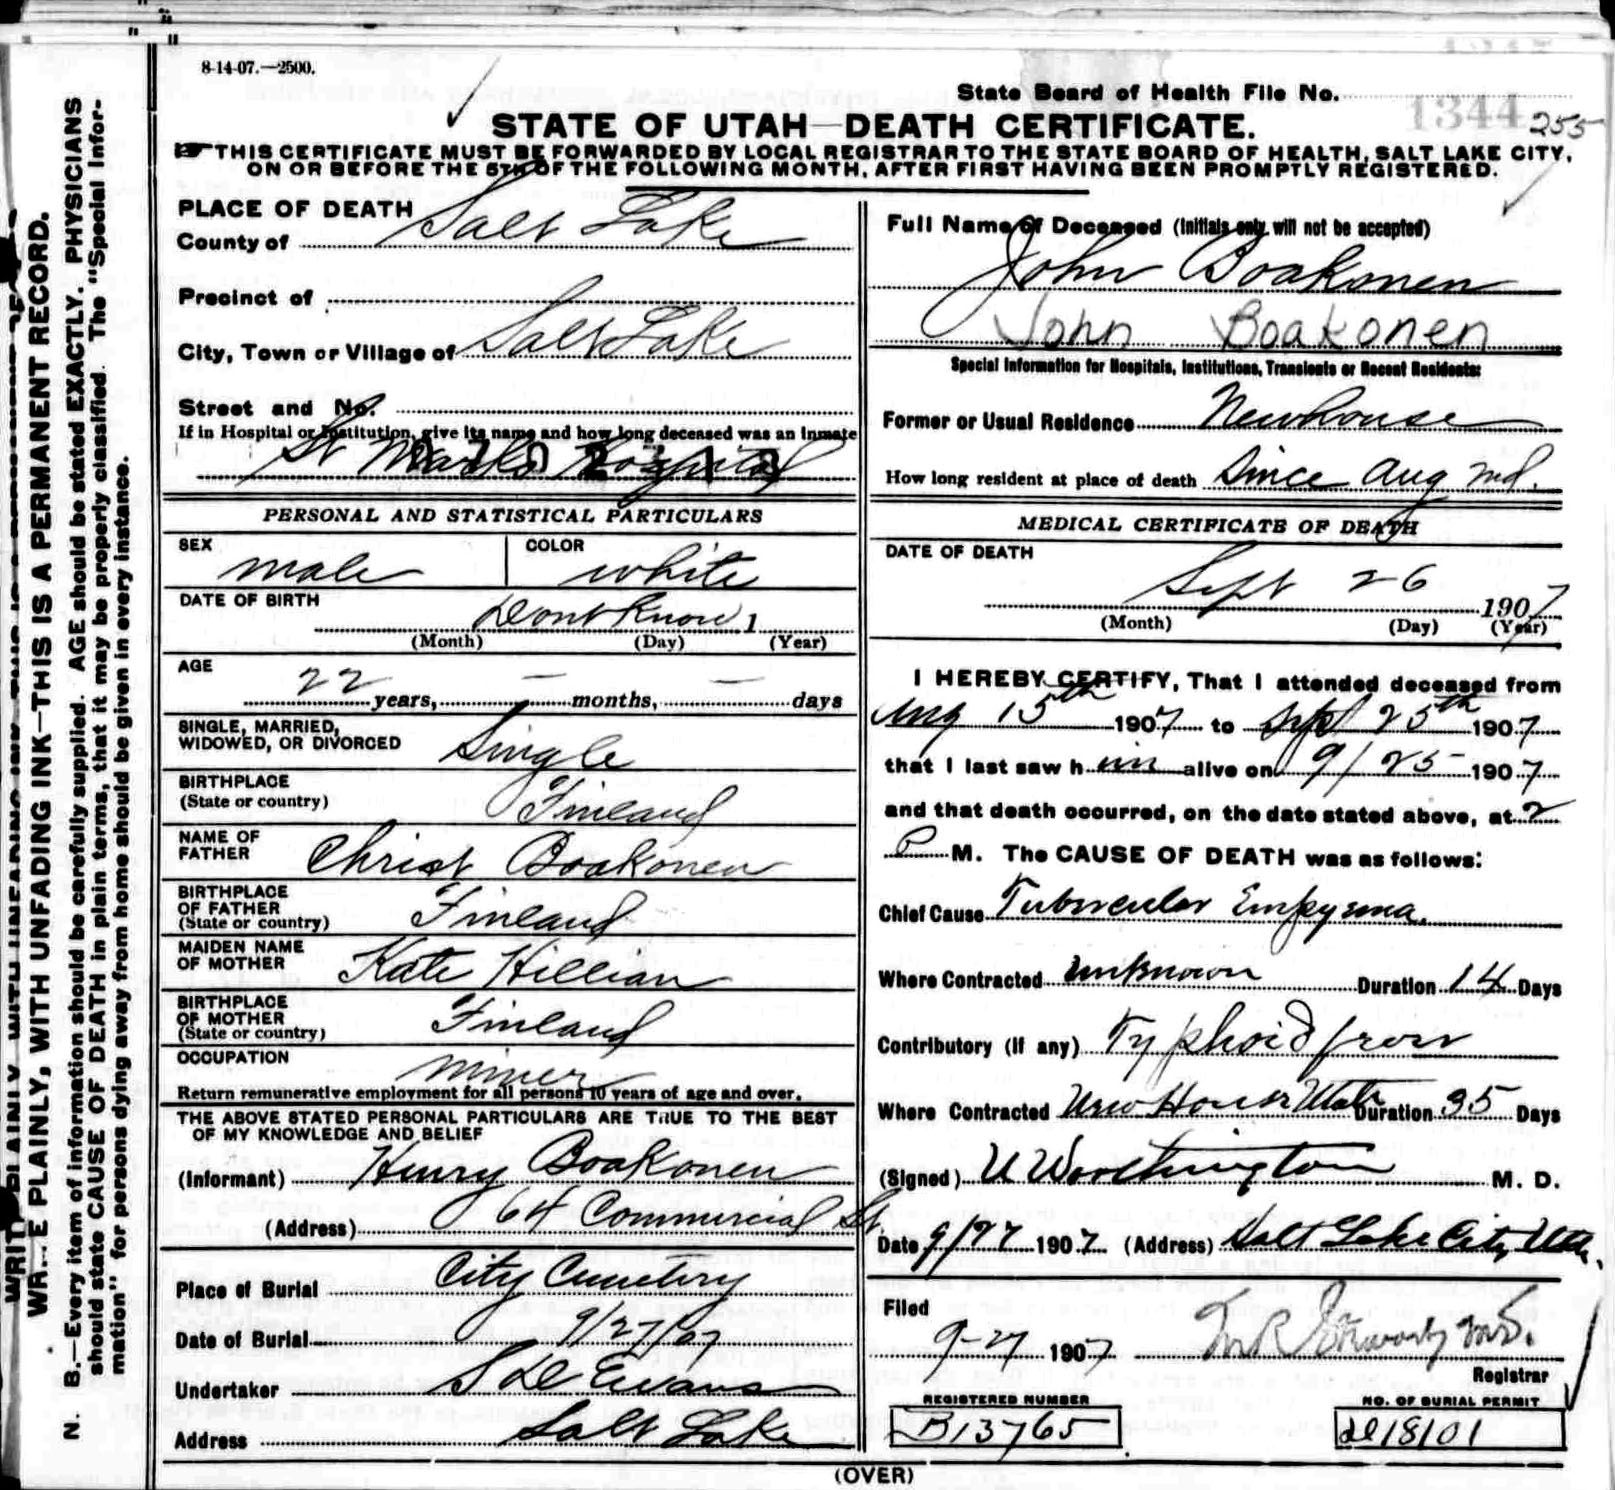 8-14-07.—2500.
State Board of Health File No.
1344 255
STATE OF UTAH—DEATH CERTIFICATE.
THIS CERTIFICATE MUST BE FORWARDED BY LOCAL REGISTRAR TO THE STATE BOARD OF HEALTH, SALT LAKE CITY,
ON OR BEFORE THE 5TH OF THE FOLLOWING MONTH, AFTER FIRST HAVING BEEN PROMPTLY REGISTERED.
WRITE PLAINLY, WITH UNFADING INK—THIS IS A PERMANENT RECORD.
N. B.—Every item of information should be carefully supplied. AGE should be stated EXACTLY. PHYSICIANS
should state CAUSE OF DEATH in plain terms, that it may be properly classified. The "Special Infor-
mation" for persons dying away from home should be given in every instance.
PLACE OF DEATH
County of Salt Lake
Precinct of
City, Town or Village of Salt Lake
Street and No.
If in Hospital or Institution, give its name and how long deceased was an Inmate
St Marks Hospital
PERSONAL AND STATISTICAL PARTICULARS
SEX male COLOR white
DATE OF BIRTH Dont Know 1
(Month) (Day) (Year)
AGE 22 years, — months, — days
SINGLE, MARRIED,
WIDOWED, OR DIVORCED Single
BIRTHPLACE
(State or country) Finland
NAME OF
FATHER Christ Boakonen
BIRTHPLACE
OF FATHER
(State or country) Finland
MAIDEN NAME
OF MOTHER Kate Hillian
BIRTHPLACE
OF MOTHER
(State or country) Finland
OCCUPATION miner
Return remunerative employment for all persons 10 years of age and over.
THE ABOVE STATED PERSONAL PARTICULARS ARE TRUE TO THE BEST
OF MY KNOWLEDGE AND BELIEF
(Informant) Henry Boakonen
(Address) 64 Commercial St.
Place of Burial City Cemetery
Date of Burial 9/27/07
Undertaker S D Evans
Address Salt Lake
Full Name of Deceased (Initials only will not be accepted)
John Boakonen
John Boakonen
Special Information for Hospitals, Institutions, Transients or Recent Residents:
Former or Usual Residence Newhouse
How long resident at place of death Since Aug
MEDICAL CERTIFICATE OF DEATH
DATE OF DEATH
Sept 26 1907
(Month) (Day) (Year)
I HEREBY CERTIFY, That I attended deceased from
Aug 15th 1907 to Sept 25th 1907
that I last saw him alive on 9/25 1907
and that death occurred, on the date stated above, at 2
P M. The CAUSE OF DEATH was as follows:
Chief Cause Tubercular Empyema
Where Contracted unknown Duration 14 Days
Contributory (if any) Typhoid fever
Where Contracted New House Utah Duration 35 Days
(Signed) U Worthington M. D.
Date 9/27 1907 (Address) Salt Lake City Utah.
Filed
9-27 1907
Registrar
REGISTERED NUMBER
B13765
NO. OF BURIAL PERMIT
D18101
(OVER)